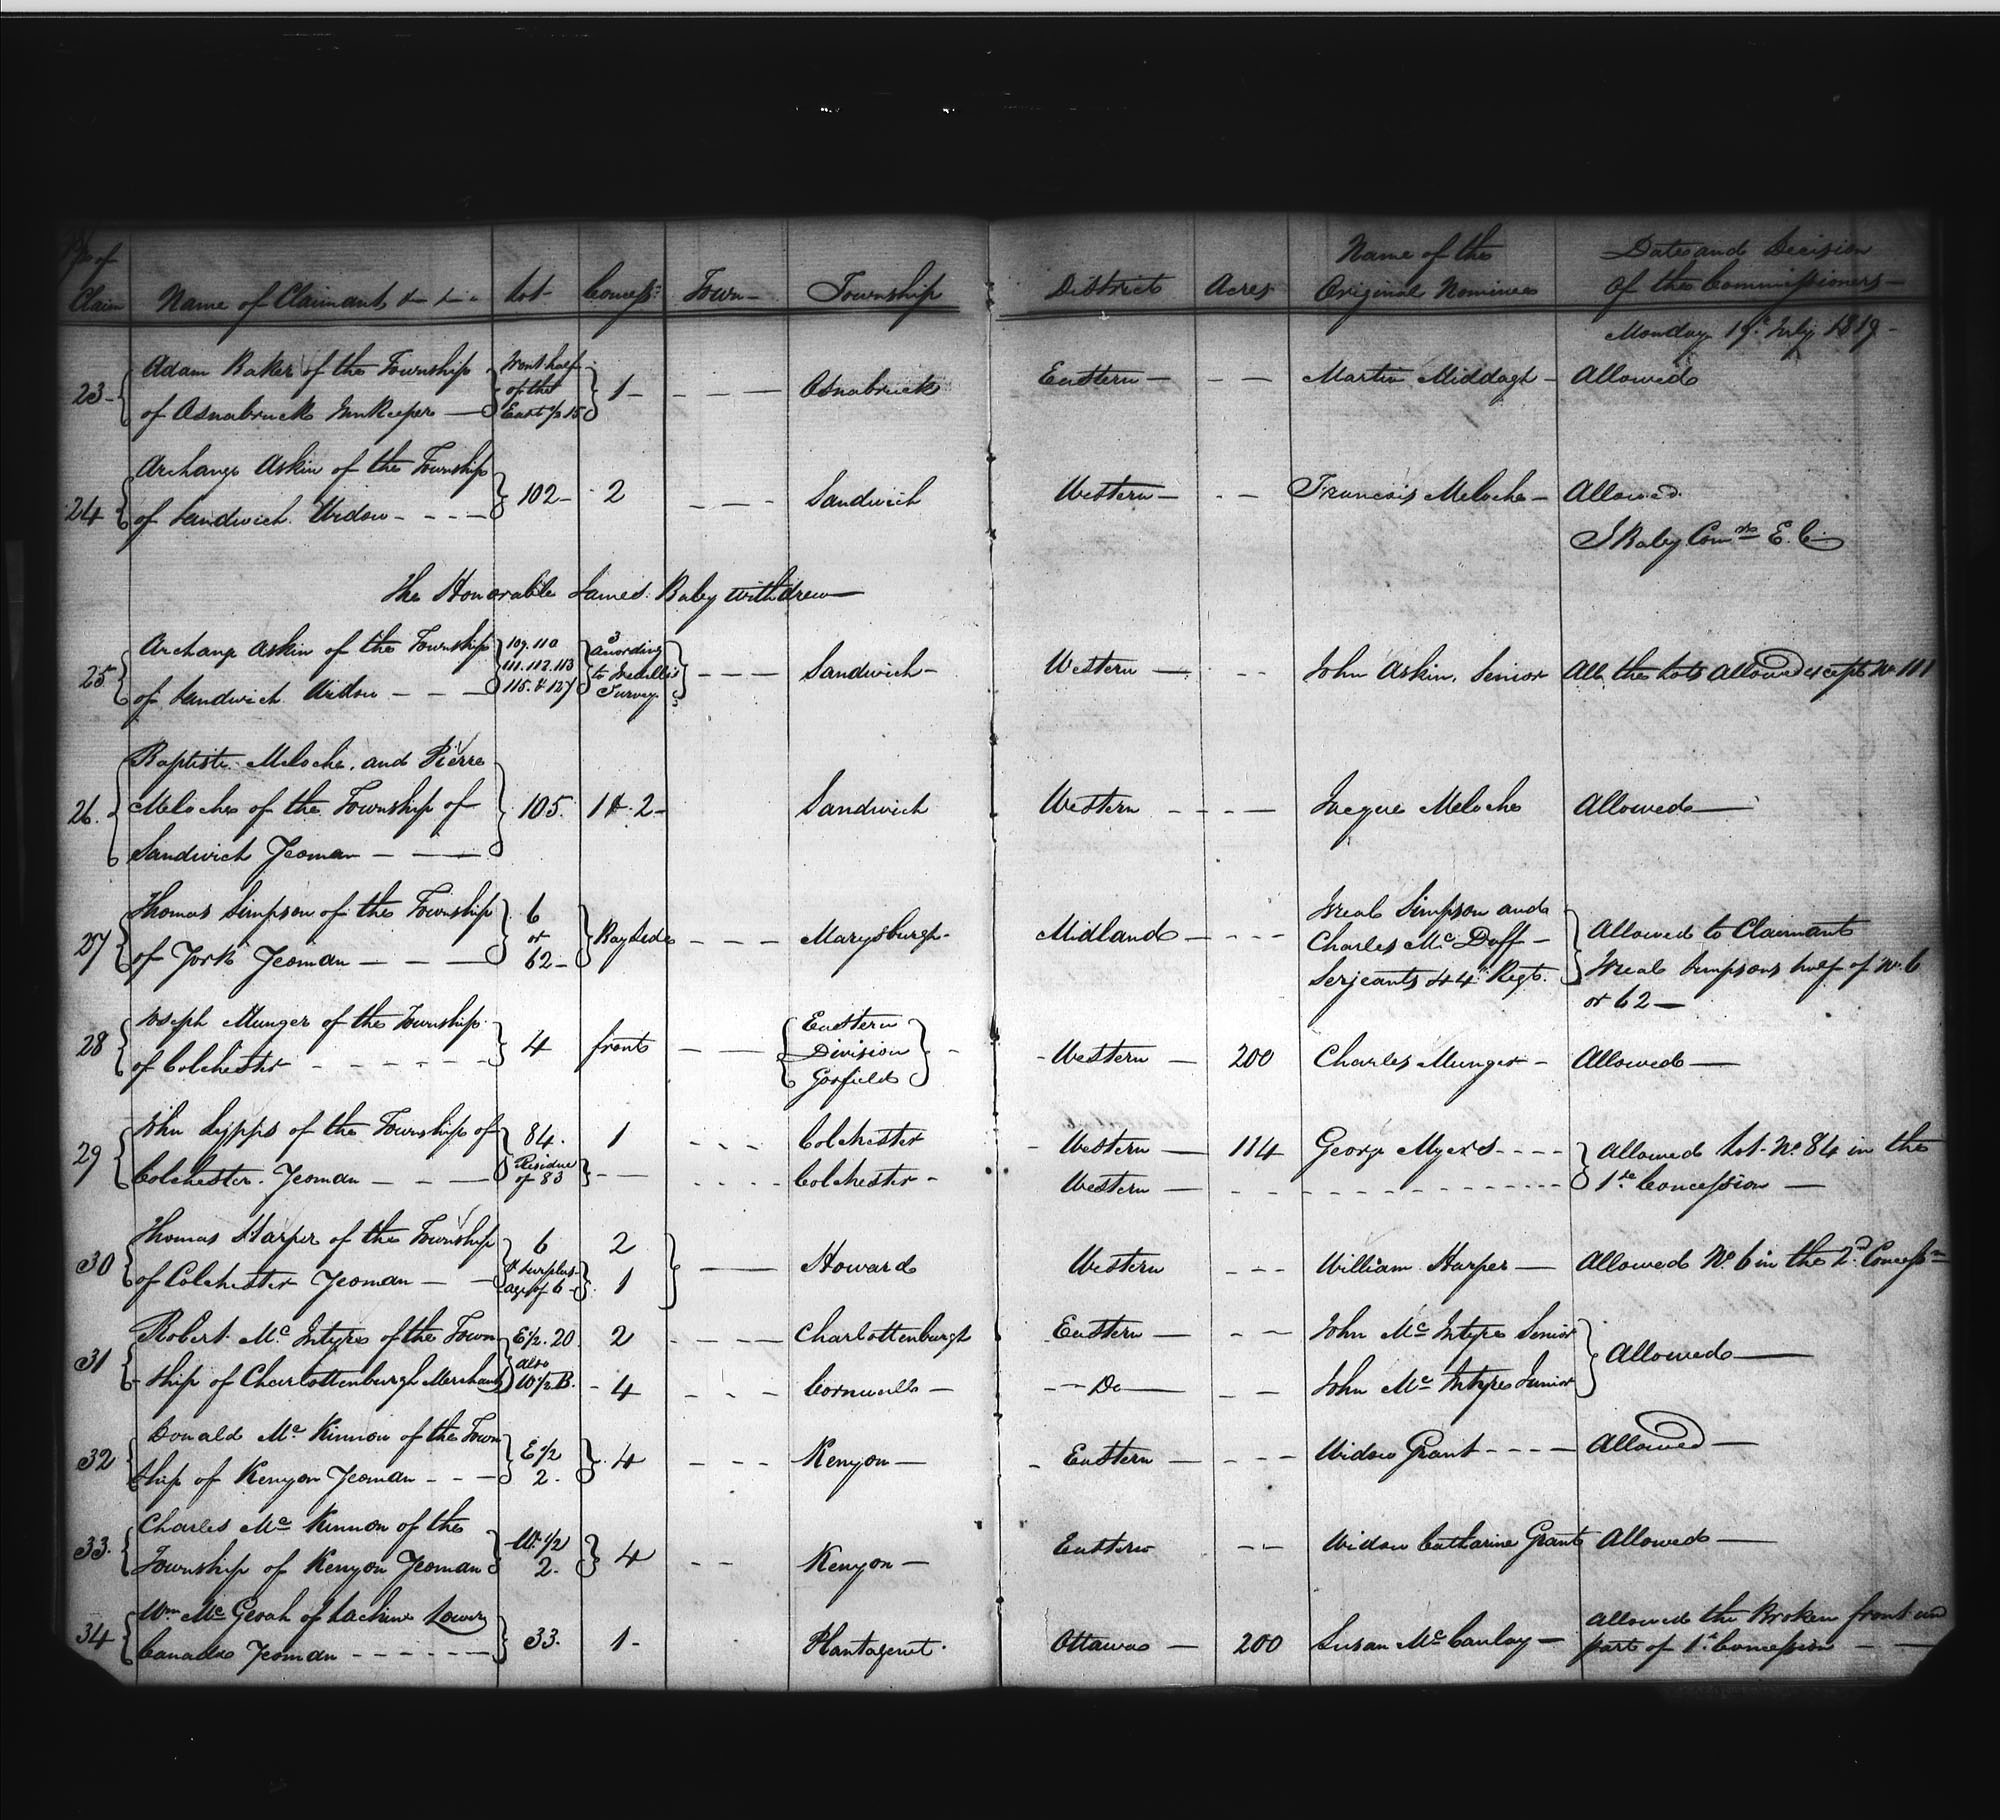 No of Claim | Name of Claimant &c &c | Lot | Concess: | Town | Township | District | Acres | Name of the Original Nominee | Date and Decision of the Commissioners
Monday 19th July 1819
23 | Adam Baker of the Township | Osnabruck | Eastern | Martin Middagh | Allowed
of Osnabruck Innkeeper | half of the East ½ 15 | 1
24 | Archange Askin of the Township | 102 | 2 | Sandwich | Western | Francois Meloche | Allowed
of Sandwich Widow
J Baby Comr E. C.
The Honorable James Baby withdrew
25 | Archange Askin of the Township | 109. 110 | 3 according | Sandwich | Western | John Askin, Senior | All the Lots Allowed except No 111
of Sandwich Widow | 111. 112. 113 | to Survey
115. & 127
26 | Baptiste Meloche, and Pierre
Meloche of the Township of | 105. | 1 & 2 | Sandwich | Western | Meloche | Allowed
Sandwich Yeoman
27 | Thomas Simpson of the Township | 6 | Bay Side | Marysburgh | Midland | Simpson and | Allowed to Claimant
of York Yeoman | or | Charles Mc Duff | Simpsons half of No. 6
62 | Serjeants 44th Regt. | or 62
28 | Joseph Munger of the Township | 4 | front | Eastern Division Gosfield | Western | 200 | Charles Munger | Allowed
of Colchester
29 | John Lypps of the Township of | 84. | 1 | Colchester | Western | 114 | George Myers | Allowed Lot No. 84 in the
Colchester. Yeoman | Residue of 83 | Colchester | Western | 1st Concession
30 | Thomas Harper of the Township | 6 | 2 | Howard | Western | William Harper | Allowed No. 6 in the 2d. Concessn
of Colchester Yeoman | & surplus- age of 6 | 1
31 | Robert Mc Intyre of the Town | E½. 20 | 2 | Charlottenburgh | Eastern | John Mc Intyre Senior | Allowed
ship of Charlottenburgh Merchant | also W½ B. | 4 | Cornwall | Do | John Mc Intyre Junior
32 | Donald Mc Kinnon of the Town | E ½ | 4 | Kenyon | Eastern | Widow Grant | Allowed
ship of Kenyon Yeoman | 2.
33. | Charles Mc Kinnon of the | W. ½ | 4 | Kenyon | Eastern | Widow Catharine Grant | Allowed
Township of Kenyon Yeoman | 2.
34 | Wm. Mc Geoah of Lachine Lower | 33. | 1 | Plantagenet | Ottawa | 200 | Susan Mc Caulay | Allowed the Broken front and
Canada Yeoman | part of 1st Concession